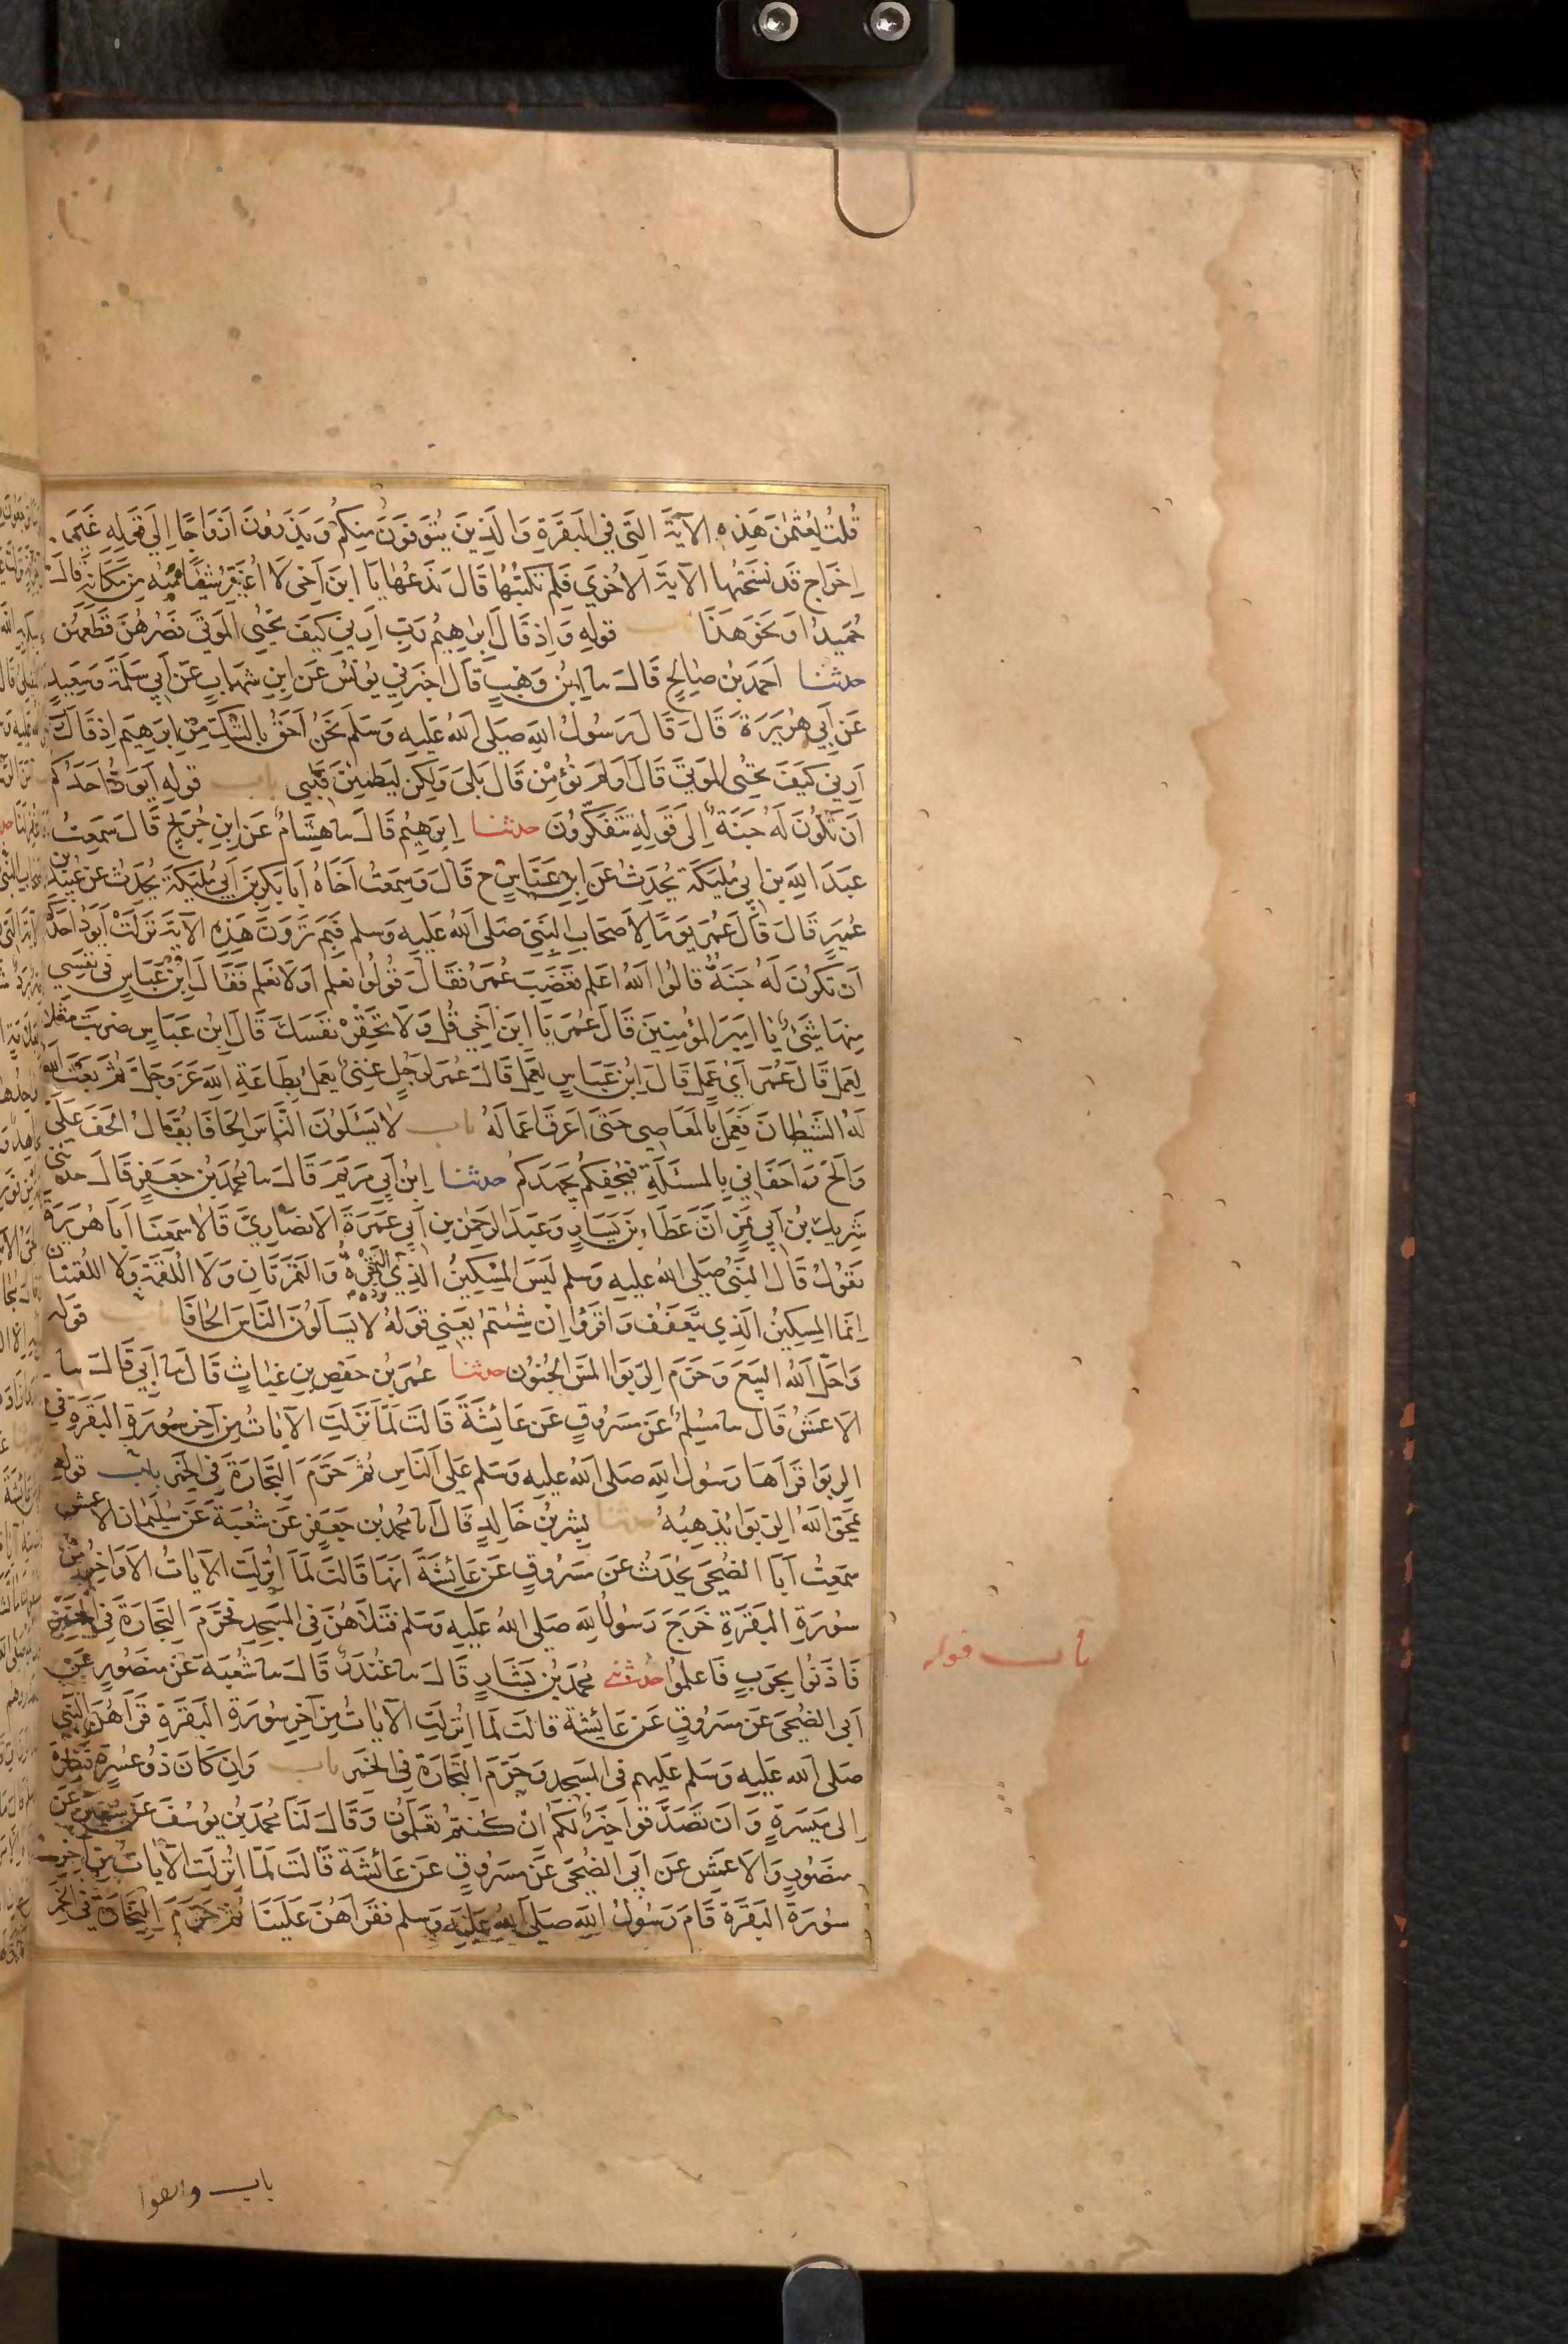 قُلتُ لِعُثمٰنَ هَذِهِ الآيَةَ الَّتي فِي البَقَرَةِ وَالَّذِينَ يُتَوَفَّونَ مِنكُم وَيَذَرُونَ اَزوَاجًا اِلَى قَولِهِ غَيرَ
اِخرَاجٍ قَد نَسَخَتهَا الآيَةُ الاُخرَي فَلِمَ تَكتُبُهَا قَالَ تَدَعُهَا يَا ابنَ اَخِي لَا اُغَيِّرُ شَيئًا مِنهُ مِن مَكَانِهِ قَالَ
حُمَيدٌ اَو نَحوَ هَذَا باب قولهِ وَاِذ قَالَ اِبرٰهِيمُ رَبِّ اَرِنِي كَيفَ تُحيِي المَوتَي فَصُرهُنَّ قَطِّعهُنَّ
حدثنا اَحمَدُ بنُ صَالِحٍ قَالَ سا ابنُ وَهبٍ قَالَ اَخبَرَنِي يُونُسُ عَنِ ابنِ شِهَابٍ عَن اَبِي سَلَمَةَ وَسَعِيدٍ
عَن اَبِي هُرَيرَةَ قَالَ قَالَ رَسُولُ اللهِ صَلَى اللهُ عَلَيهِ وَسَلَم نَحنُ اَحَقُّ بِالشَّكِّ مِن اِبرٰهِيمَ اِذ قَالَ رَبِّ
اَرِنِي كَيفَ تُحيِي المَوتَي قَالَ اَوَلَم تُؤمِن قَالَ بَلَى وَلَكِن لِيَطمَئِنَّ قَلبِي باب قولهِ اَيَوَدُّ اَحَدُكُم
اَن تَكُونَ لَهُ جَنَّةٌ اِلَى قَولِهِ تَتَفَكَّرُونَ حدثنا اِبرٰهِيمُ قَالَ سا هِشَامٌ عَنِ ابنِ جُرَيجٍ قَالَ سَمِعتُ
عَبدَ اللهِ بنَ اَبِي مُلَيكَةَ يُحَدِّثُ عَنِ ابنِ عَبَّاسٍ ح قَالَ وَسَمِعتُ اَخَاهُ اَبَا بَكرِ بنَ اَبِي مُلَيكَةَ يُحَدِّثُ عَن عُبَيدِ بن
عُمَيرٍ قَالَ قَالَ عُمَرُ يَومًا لِاَصحَابِ النَّبِيِّ صَلَى اللهُ عَلَيهِ وَسَلم فِيمَ تَرَونَ هَذِهِ الآيَةَ نَزَلَت اَيَوَدُّ اَحَدُكُم
اَن تَكُونَ لَهُ جَنَّةٌ قَالُوا اللهُ اَعلَم فَغَضِبَ عُمَرُ فَقَالَ قُولُوا نَعلَم اَو لَا نَعلَم فَقَالَ ابنُ عَبَّاسٍ فِي نَفسِي
مِنهَا شَيءٌ يَا اَمِيرَ المُؤمِنِينَ قَالَ عُمَرُ يَا ابنَ اَخِي قُل وَلَا تَحقِر نَفسَكَ قَالَ ابنُ عَبَّاسٍ ضُرِبَت مَثَلًا
لِعَمَلٍ قَالَ عُمَرُ اَيُّ عَمَلٍ قَالَ ابنُ عَبَّاسٍ لِعَمَلٍ قَالَ عُمَرُ لِرَجُلٍ غَنِيٍّ يَعمَلُ بِطَاعَةِ اللهِ عَزَّ وَجَلَّ ثُمَّ بَعَثَ اللهُ
لَهُ الشَّيطَانَ فَعَمِلَ بِالمَعَاصِي حَتَّى اَغرَقَ اَعمَالَهُ باب لَا يَسئَلُونَ النَّاسَ اِلحَافًا يُقَالُ اَلحَفَ عَلَيَّ
وَاَلَحَّ وَاَحفَانِي بِالمَسئَلَةِ فَيُحفِكُم يُجهِدكُم حدثنا ابنُ اَبِي مَريَمَ قَالَ سا مُحَمَّدُ بنُ جَعفَرٍ قَالَ حدثني
شَرِيكُ بنُ اَبِي نَمِرٍ اَنَّ عَطَاءَ بنَ يَسَارٍ وَعَبدَ الرَّحمٰنِ بنَ اَبِي عَمرَةَ الاَنصَارِيَّ قَالَا سَمِعنَا اَبَا هُرَيرَةَ
يَقُولُ قَالَ النَّبِيُّ صَلَى اللهُ عَلَيهِ وَسَلم لَيسَ المِسكِينُ الَّذِي تَرُدُّهُ التَّمرَةُ وَالتَّمرَتَانِ وَلَا اللُّقمَةُ وَلَا اللُّقمَتَانِ
اِنَّمَا المِسكِينُ الَّذِي يَتَعَفَّفُ وَاقرَؤُا اِن شِئتُم يَعنِي قَولَهُ لَا يَسأَلُونَ النَّاسَ اِلحَافًا باب قوله
وَاَحَلَّ اللهُ البَيعَ وَحَرَّمَ الرِّبَوا المَسُّ الجُنُونُ حدثنا عُمَرُ بنُ حَفصِ بنِ غِيَاثٍ قَالَ سا اَبِي قَالَ سا
الاَعمَشُ قَالَ سا مُسلِمٌ عَن مَسرُوقٍ عَن عَائِشَةَ قَالَت لَمَّا نَزَلَتِ الآيَاتُ مِن آخِرِ سُورَةِ البَقَرَةِ فِي
الرِّبَوا قَرَاَهَا رَسُولُ اللهِ صَلَى اللهُ عَلَيهِ وَسَلم عَلَى النَّاسِ ثُمَّ حَرَّمَ التِّجَارَةَ فِي الخَمرِ باب قوله
يَمحَقُ اللهُ الرِّبَوا يُذهِبُهُ حدثنا بِشرُ بنُ خَالِدٍ قَالَ انا مُحَمَّدُ بنُ جَعفَرٍ عَن شُعبَةَ عَن سُلَيمَانَ الاعمش
سَمِعتُ اَبَا الضُّحَى يُحَدِّثُ عَن مَسرُوقٍ عَن عَائِشَةَ اَنَّهَا قَالَت لَمَّا اُنزِلَتِ الآيَاتُ الاَوَاخِرُ مِن
سُورَةِ البَقَرَةِ خَرَجَ رَسُولُ اللهِ صَلَى اللهُ عَلَيهِ وَسَلم فَتَلَاهُنَّ فِي المَسجِدِ فَحَرَّمَ التِّجَارَةَ فِي الخَمرِ
باب قوله
فَاذَنُوا بِحَربٍ فَاعلَمُوا حدثني مُحَمَّدُ بنُ بَشَّارٍ قَالَ سا غُندَرٌ قَالَ سا شُعبَةُ عَن مَنصُورٍ عَن
اَبِي الضُّحَى عَن مَسرُوقٍ عَن عَائِشَةَ قَالَت لَمَّا اُنزِلَتِ الآيَاتُ مِن آخِرِ سُورَةِ البَقَرَةِ قَرَاَهُنَّ النَّبِيُّ
صَلَى اللهُ عَلَيهِ وَسَلم عَلَيهِم فِي المَسجِدِ وَحَرَّمَ التِّجَارَةَ فِي الخَمرِ باب وَاِن كَانَ ذُو عُسرَةٍ فَنَظِرَةٌ
اِلَى مَيسَرَةٍ وَاَن تَصَدَّقُوا خَيرٌ لَكُم اِن كُنتُم تَعلَمُونَ وَقَالَ لَنَا مُحَمَّدُ بنُ يُوسُفَ عَن سُفيٰنَ عَن
مَنصُورٍ وَالاَعمَشِ عَن اَبِي الضُّحَى عَن مَسرُوقٍ عَن عَائِشَةَ قَالَت لَمَّا اُنزِلَتِ الآيَاتُ مِن آخِرِ
سُورَةِ البَقَرَةِ قَامَ رَسُولُ اللهِ صَلَى اللهُ عَلَيهِ وَسَلم فَقَرَاَهُنَّ عَلَينَا ثُمَّ حَرَّمَ التِّجَارَةَ فِي الخَمرِ
باب واتقوا